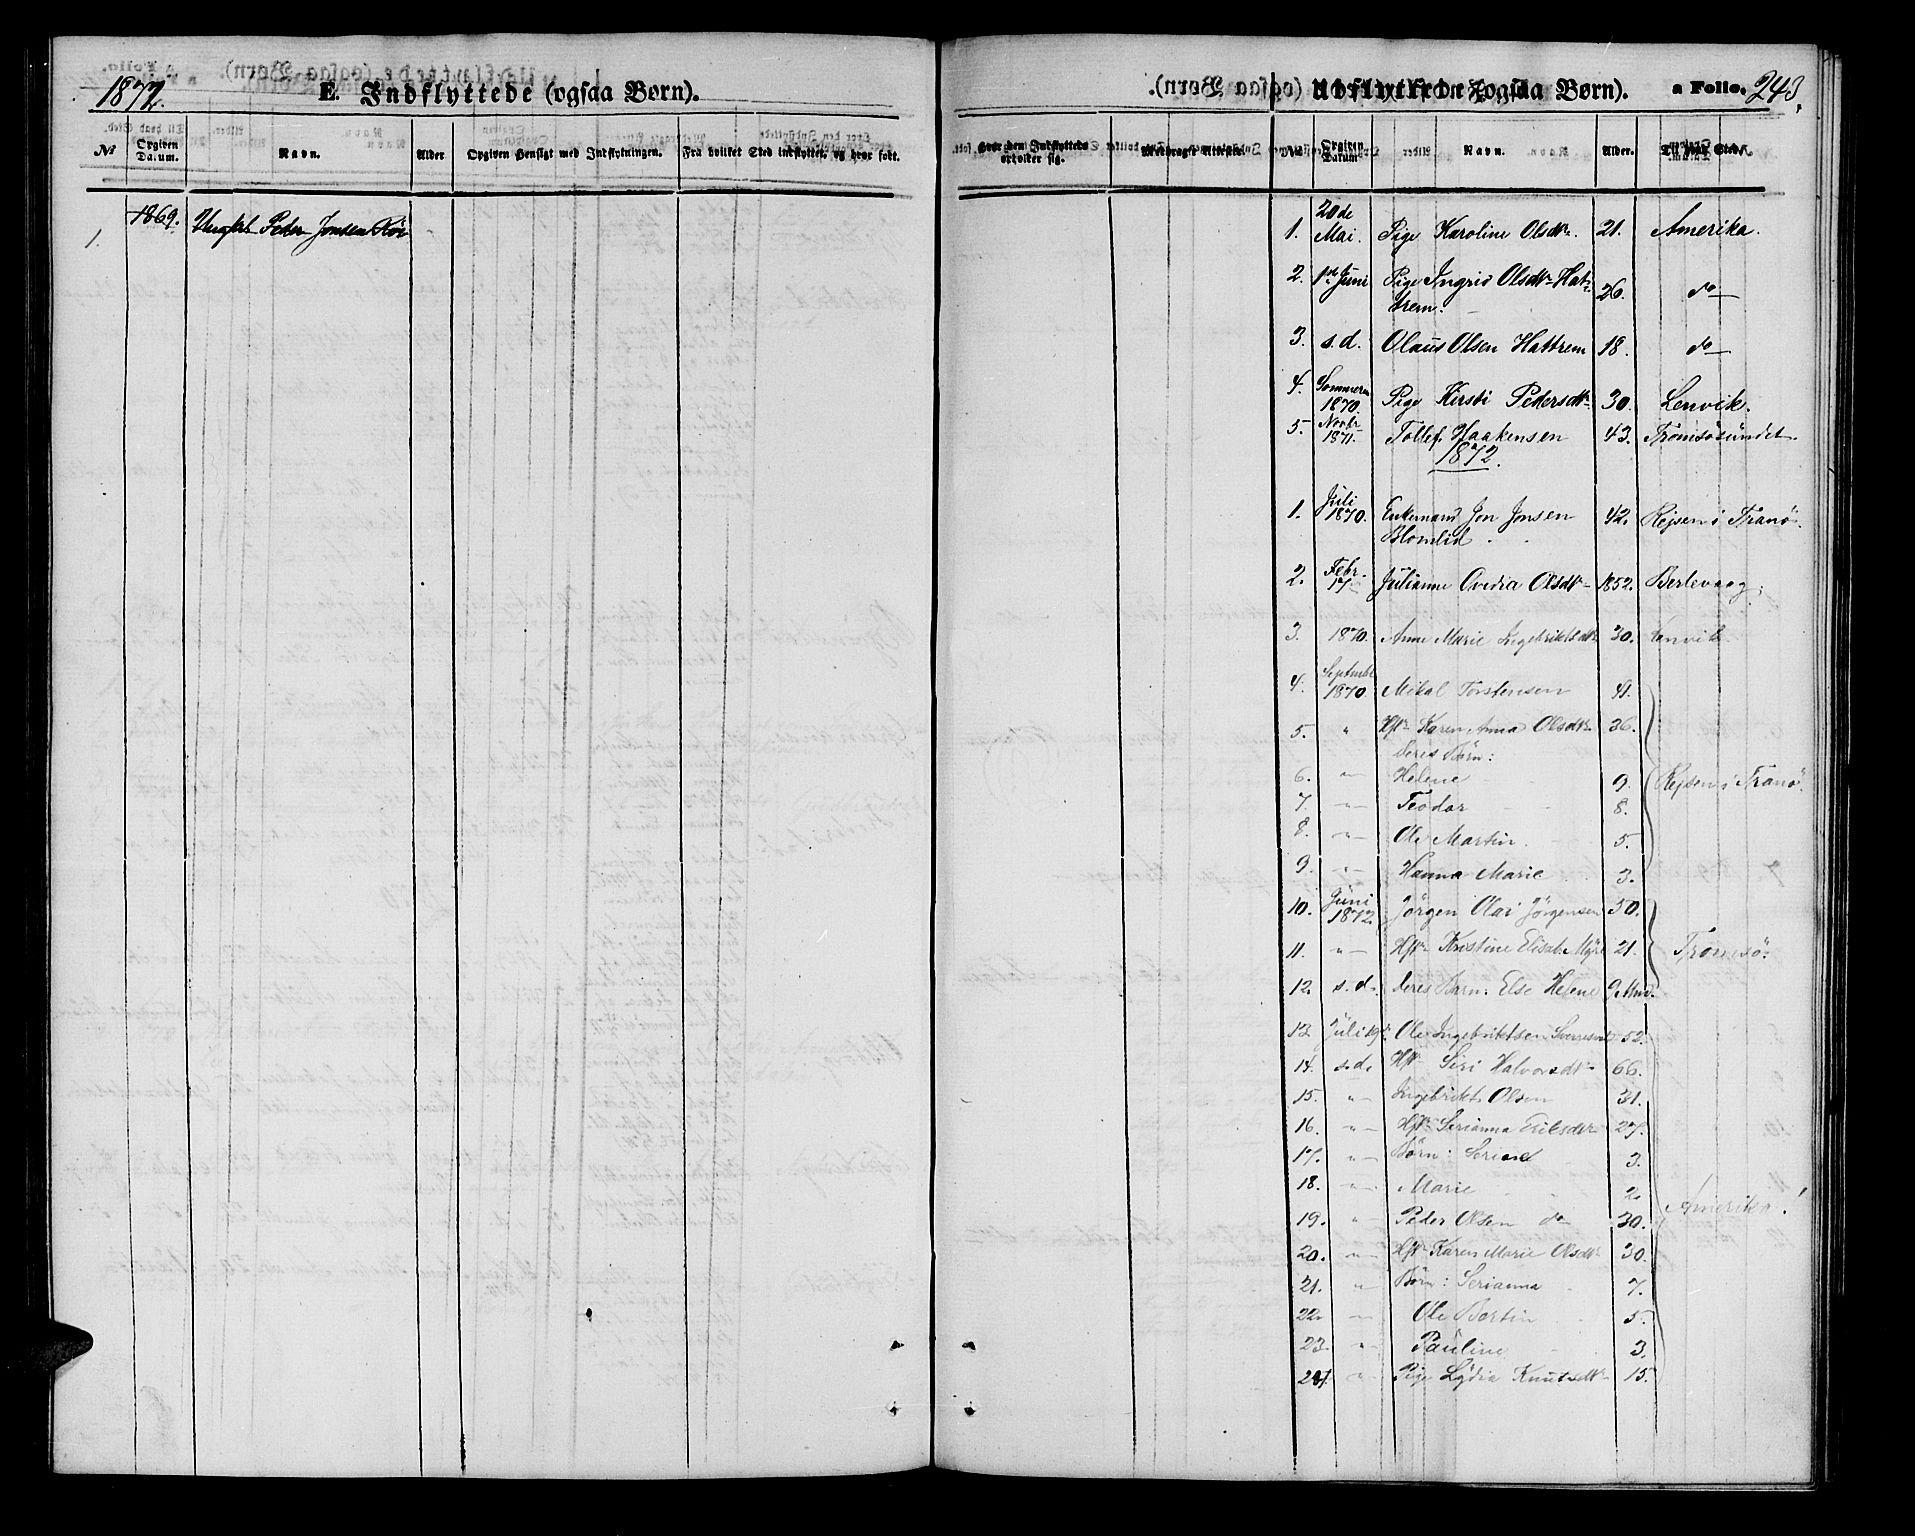 1871.
E. Indflyttede (ogsaa Børn).
№
Opgiven Datum.
Navn.
Alder
Opgiven Hensigt med Indflytningen.
Fra hvilket Sted indflyttet, og hvor født.
1. 1869. Ungkl. Peder Jonsen
Udflyttede (ogsaa Børn).
a Folio. 243.
Hvor den Indflyttede opholder sig.
Opgiven Datum
Navn.
Alder.
Til hvad Sted.
1. 20de Mai. Pige Karoline Olsdtr. 21. Amerika.
2. 1ste Juni Pige Ingrid Olsdtr Hat-
trem. 26. do
3. s.d. Olaus Olsen Hattrem 18. do
4. Sommeren 1870. Pige Kirsti Pedersdtr 30. Lenvik.
5. Novbr 1871. Tollef Haakensen 43. Tromsøsundet.
1872.
1. Juli 1870. Enkemand Jon Jonsen 42. Rejsen i Tranø.
Blomlid
2. Febr. 17 Julianne Ovedia Olsdtr 1852. Berlevaag.
3. 1870. Anne Marie Ingebriktsdtr 30. Lenvik.
4. Septembr 1870 Mikal Torstensen 41.
5. " Hstr Karen Anna Olsdtr 36.
deres Børn:
6. " Helene 9. Rejsen i Tranø.
7. " Teodor 8.
8. " Ole Martin. 5.
9. " Hanna Marie 3.
10. Juni 1872. Jørgen Olai Jørgensen 50.
11. " Hstr Kristine Elisab. Myre 21. Tromsø.
12. s.d. deres Barn: Else Helene 9 Mnd.
13. Juli Ole Ingebriktsen 52.
14. s.d. Hstr Siri Halvorsdtr 66.
15. " Ingebrikt Olsen 31.
16. " Hstr Serianna Eriksdtr 27.
17. " Børn: 3.
18. " Marie 2. Amerika!
19. " Peder Olsen do 30.
20. " Hstr Karen Marie Olsdtr 30.
21. " Børn: Serianna 7.
22. " Ole Bertin 5.
23. " Pauline 3.
24. " Pige Lydia Knutsdtr 15.